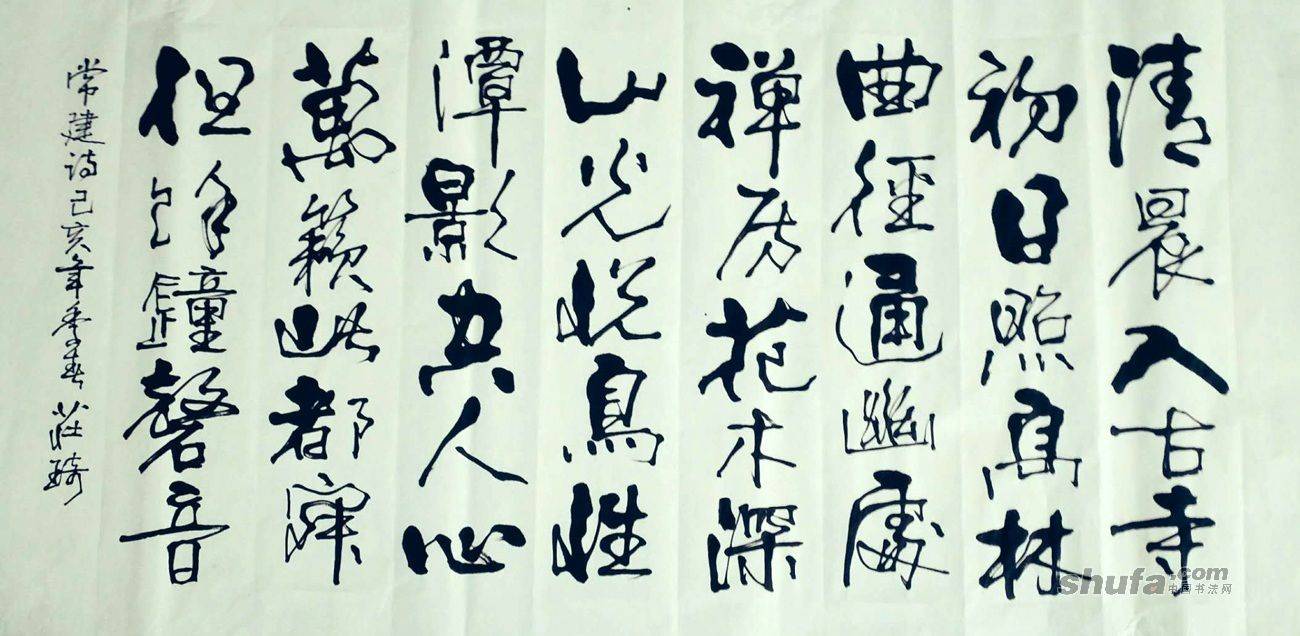 清晨入古寺
初日照高林
曲徑通幽處
禪房花木深
山光悦鳥性
潭影空人心
萬籟此都寂
但餘鐘磬音
常建诗己亥年季春 莊琦
shufa.com
中国书法网